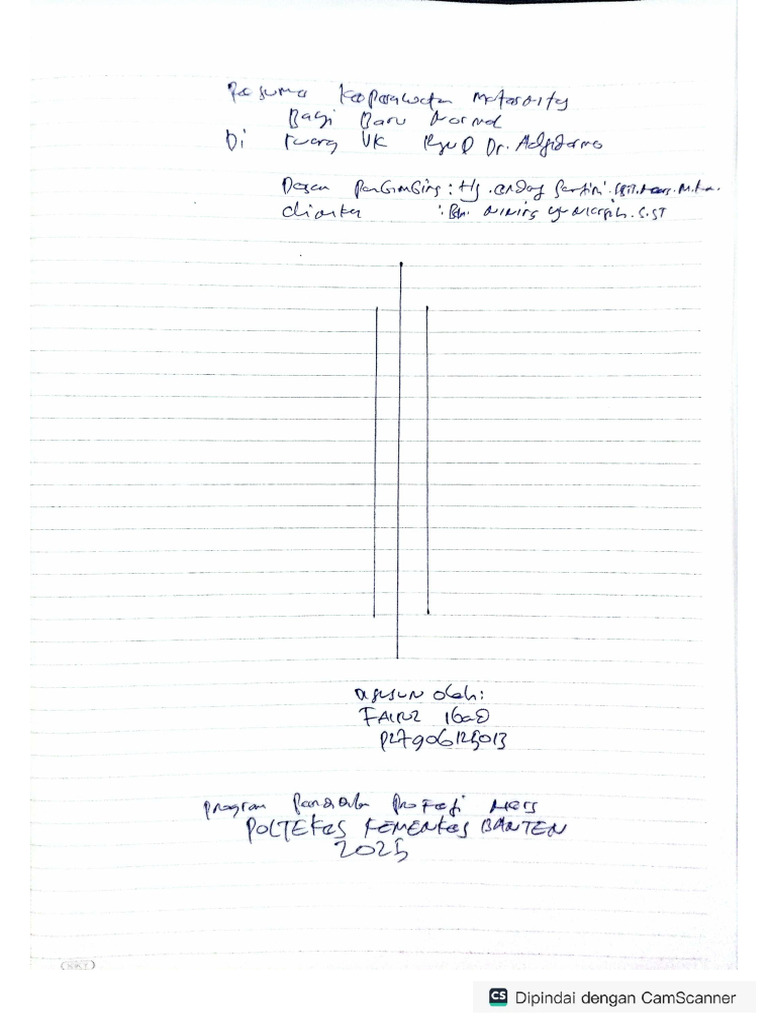 Resume Keperawatan Maternitas
Bayi Baru Normal
Di ruang VK RSUD Dr. Adjidarmo
Dosen Pembimbing : Hj. endang
: Bdn. S.ST
disusun oleh:
FAIRUZ
P27906125013
program Profesi Ners
POLTEKES KEMENKES BANTEN
2025
SKY
CS Dipindai dengan CamScanner